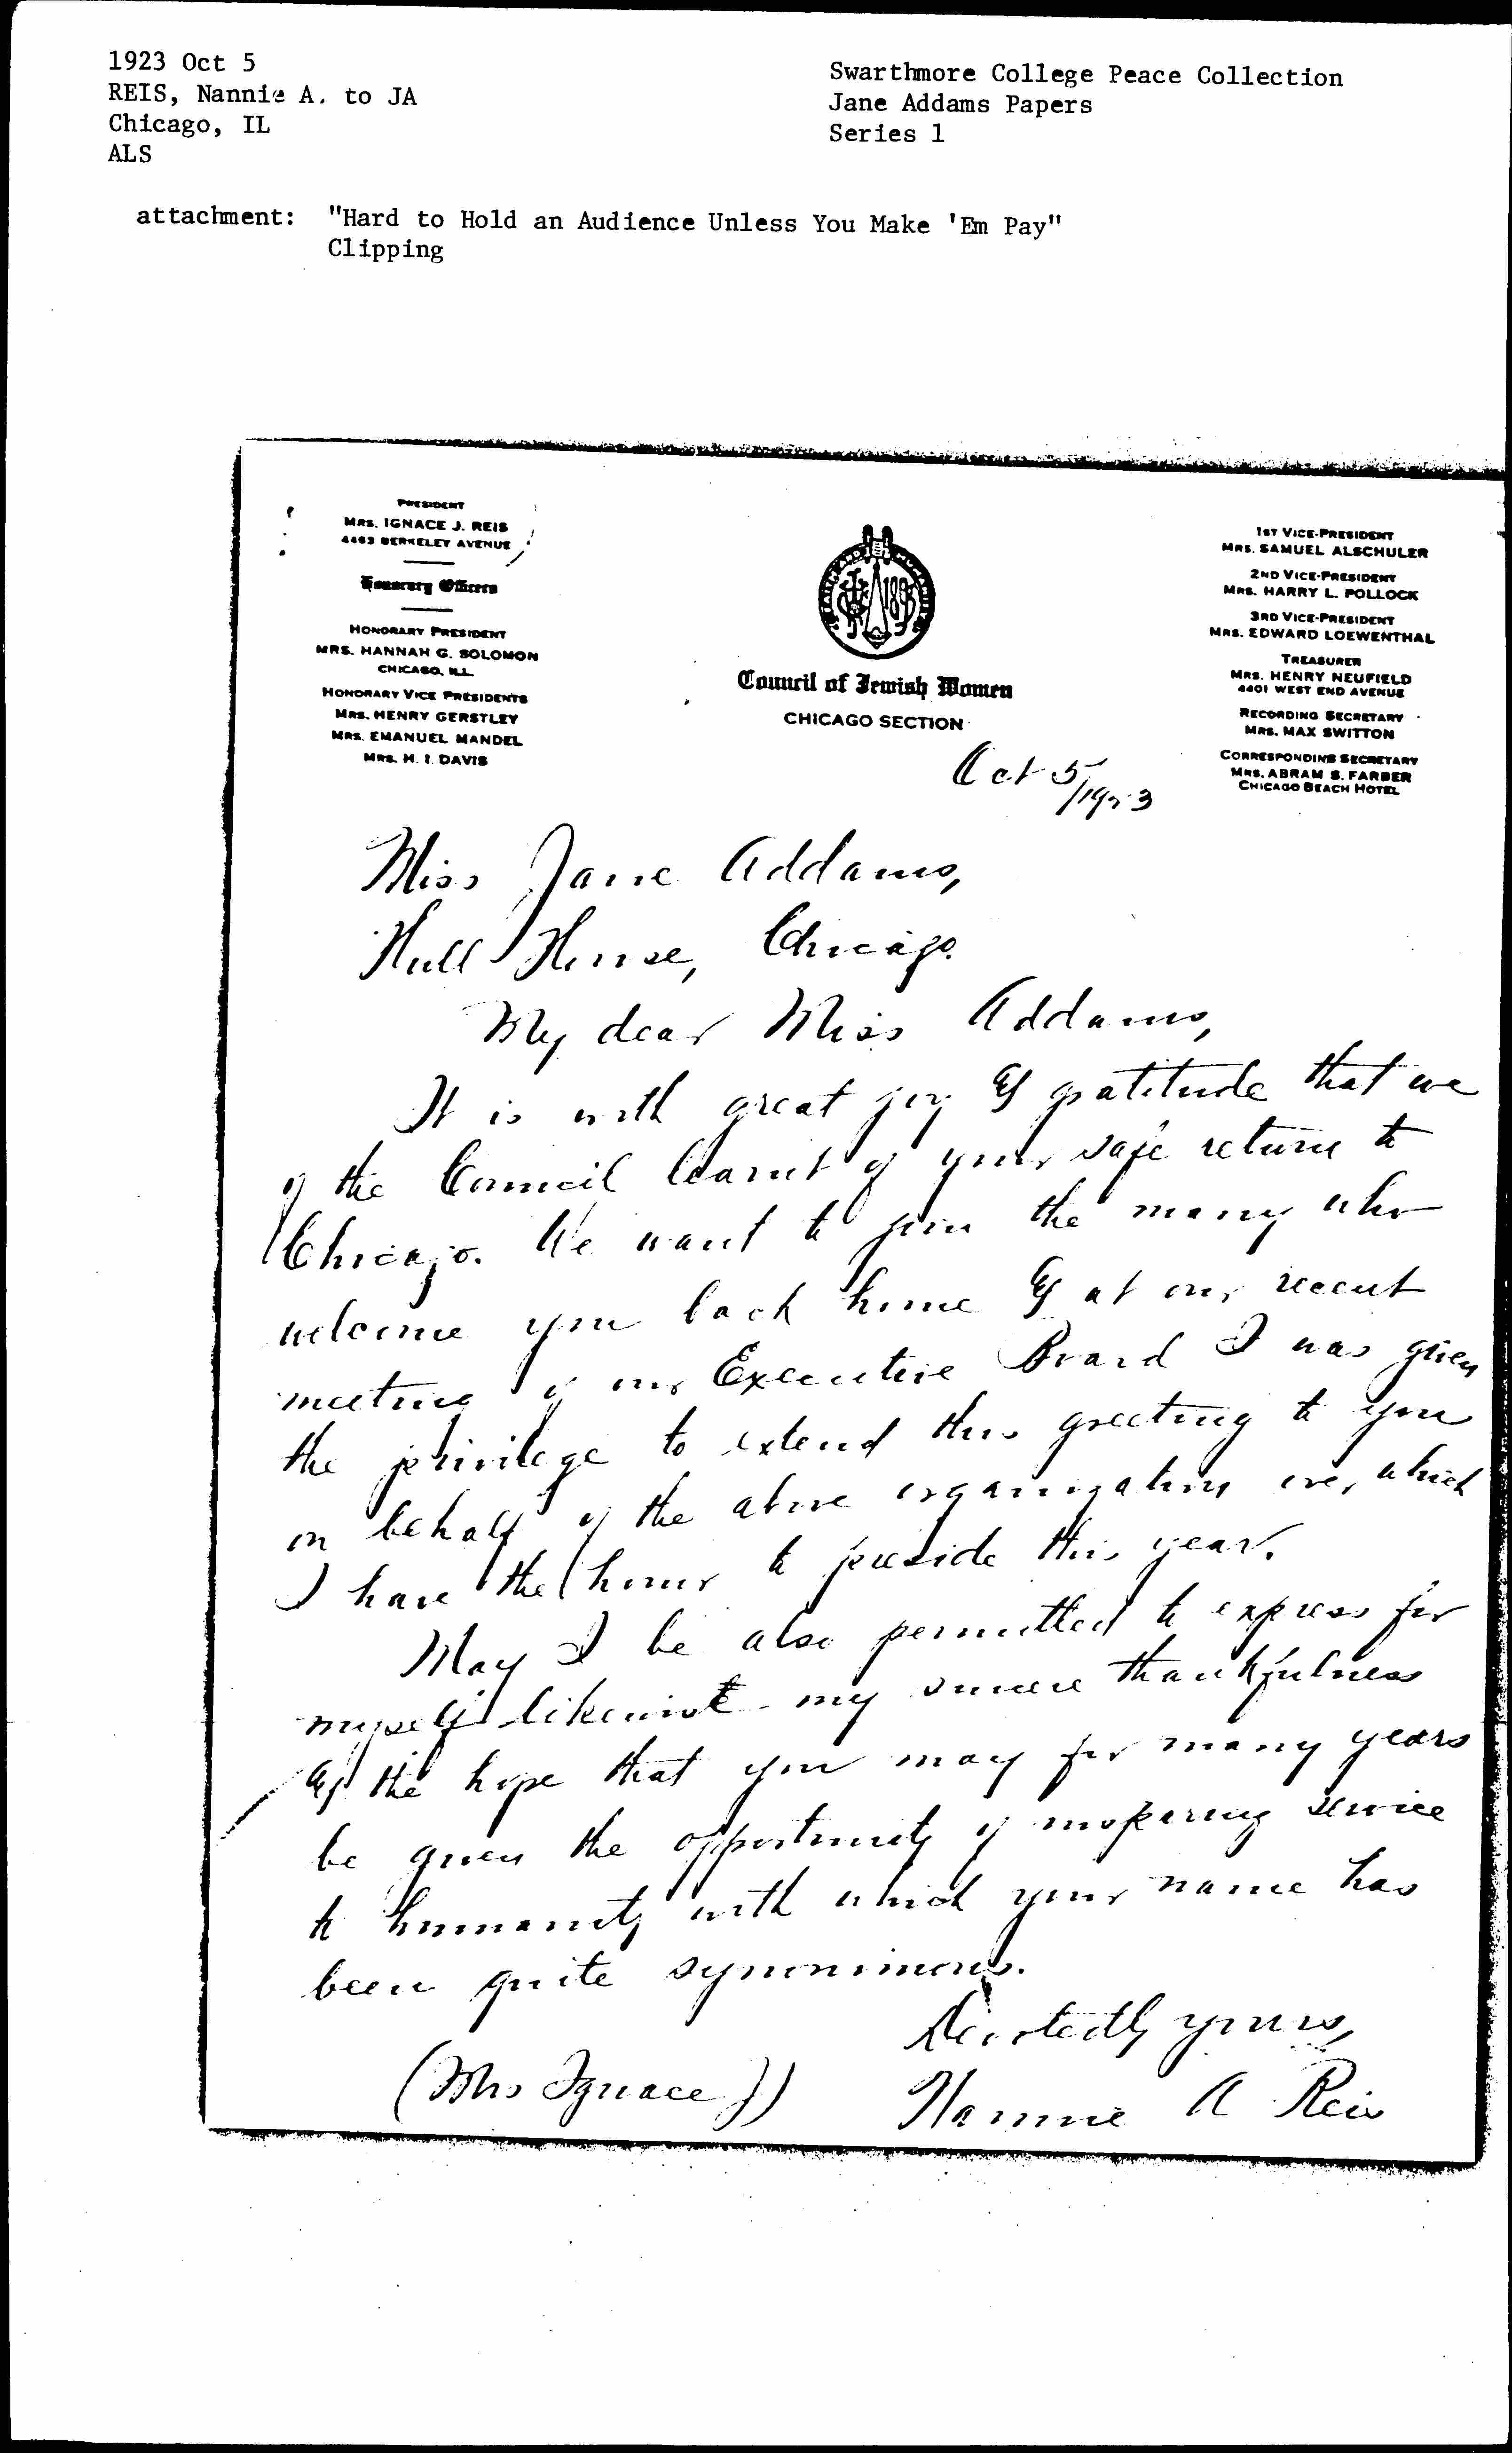 1923 Oct 5
REIS, Nannie A. to JA
Chicago, IL
ALS
Swarthmore College Peace Collection
Jane Addams Papers
Series 1
attachment: "Hard to Hold an Audience Unless You Make 'Em Pay"
Clipping
PRESIDENT
MRS. IGNACE J. REIS
4463 BERKELEY AVENUE
Honorary Officers
HONORARY PRESIDENT
MRS. HANNAH G. SOLOMON
CHICAGO, ILL.
HONORARY VICE PRESIDENTS
MRS. HENRY GERSTLEY
MRS. EMANUEL MANDEL
MRS. H. I. DAVIS
1893
Council of Jewish Women
CHICAGO SECTION
1ST VICE-PRESIDENT
MRS. SAMUEL ALSCHULER
2ND VICE-PRESIDENT
MRS. HARRY L. POLLOCK
3RD VICE-PRESIDENT
MRS. EDWARD LOEWENTHAL
TREASURER
MRS. HENRY NEUFIELD
4401 WEST END AVENUE
RECORDING SECRETARY
MRS. MAX SWITTON
CORRESPONDING SECRETARY
MRS. ABRAM S. FARBER
CHICAGO BEACH HOTEL
Oct 5/1923
Miss Jane Addams,
Hull House, Chicago.
My dear Miss Addams,
It is with great joy & gratitude that we
of the Council learnt of your safe return to
Chicago. We want to join the many who
welcome you back home & at our recent
meeting of our Executive Board I was given
the privilege to extend this greeting to you
on behalf of the above organization over which
I have the honor to preside this year.
May I be also permitted to express for
myself likewise my sincere thankfulness
& the hope that you may for many years
be given the opportunity of inspiring service
to humanity with which your name has
been quite synonimous.
Devotedly yours,
(Mrs Ignace J) Nannie A Reis